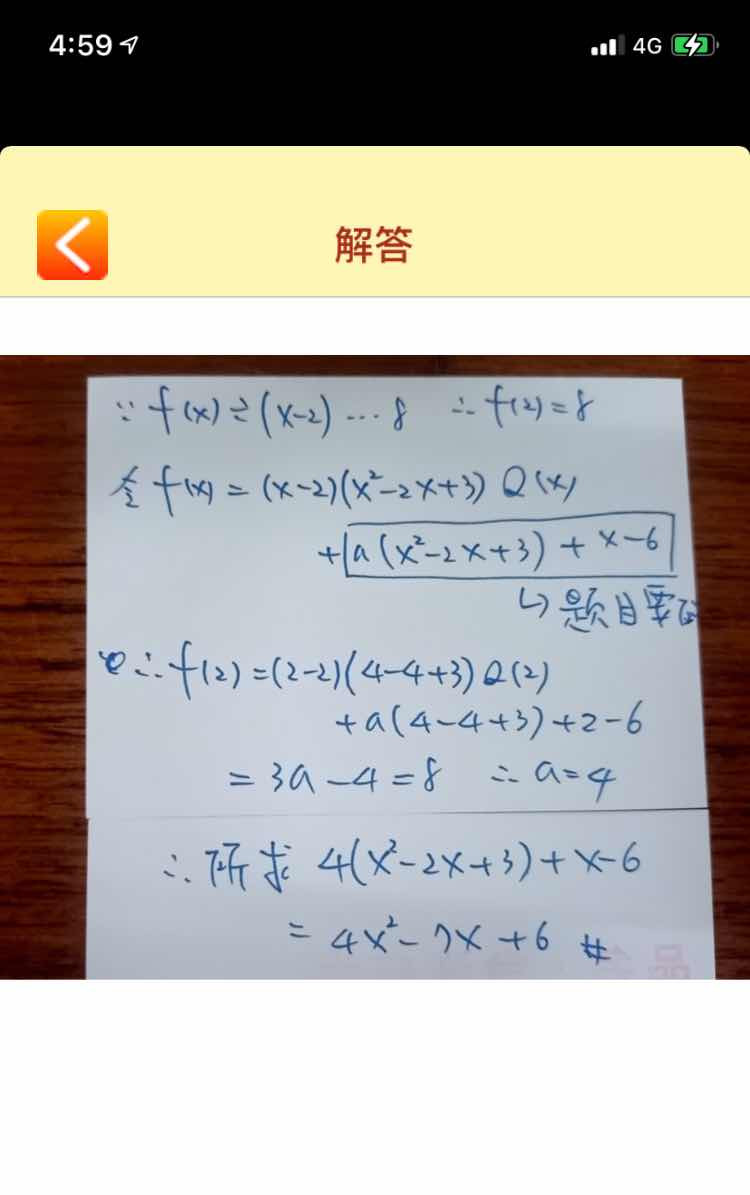 4:59
4G
解答
∵ f(x) ÷ (x-2) … 8 ∴ f(2) = 8
令 f(x) = (x-2)(x²-2x+3) Q(x)
+ a(x²-2x+3) + x-6
↳ 题目要
∴ f(2) = (2-2)(4-4+3) Q(2)
+ a(4-4+3) + 2-6
= 3a - 4 = 8 ∴ a = 4
∴ 所求 4(x²-2x+3) + x-6
= 4x² - 7x + 6 #